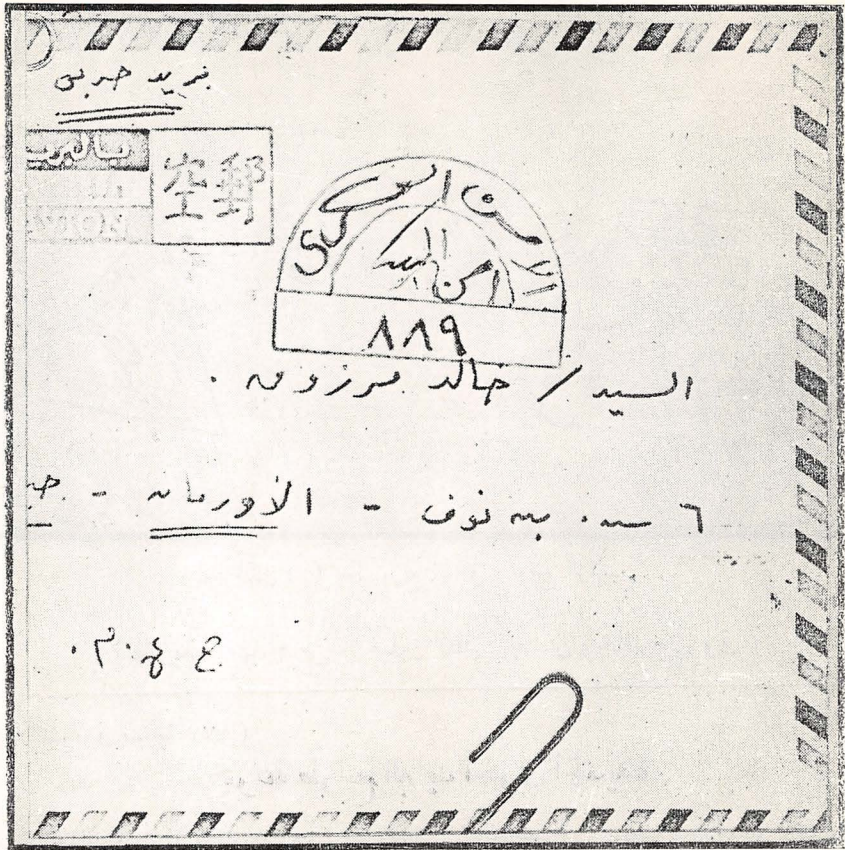 بريد حربى
بالبريد
郵空
الامن العسكرى
أمن
٨٨٩
السيد / خالد مرزوق .
٦ ش . بين نوف - الأورمان -
ج ع . م .